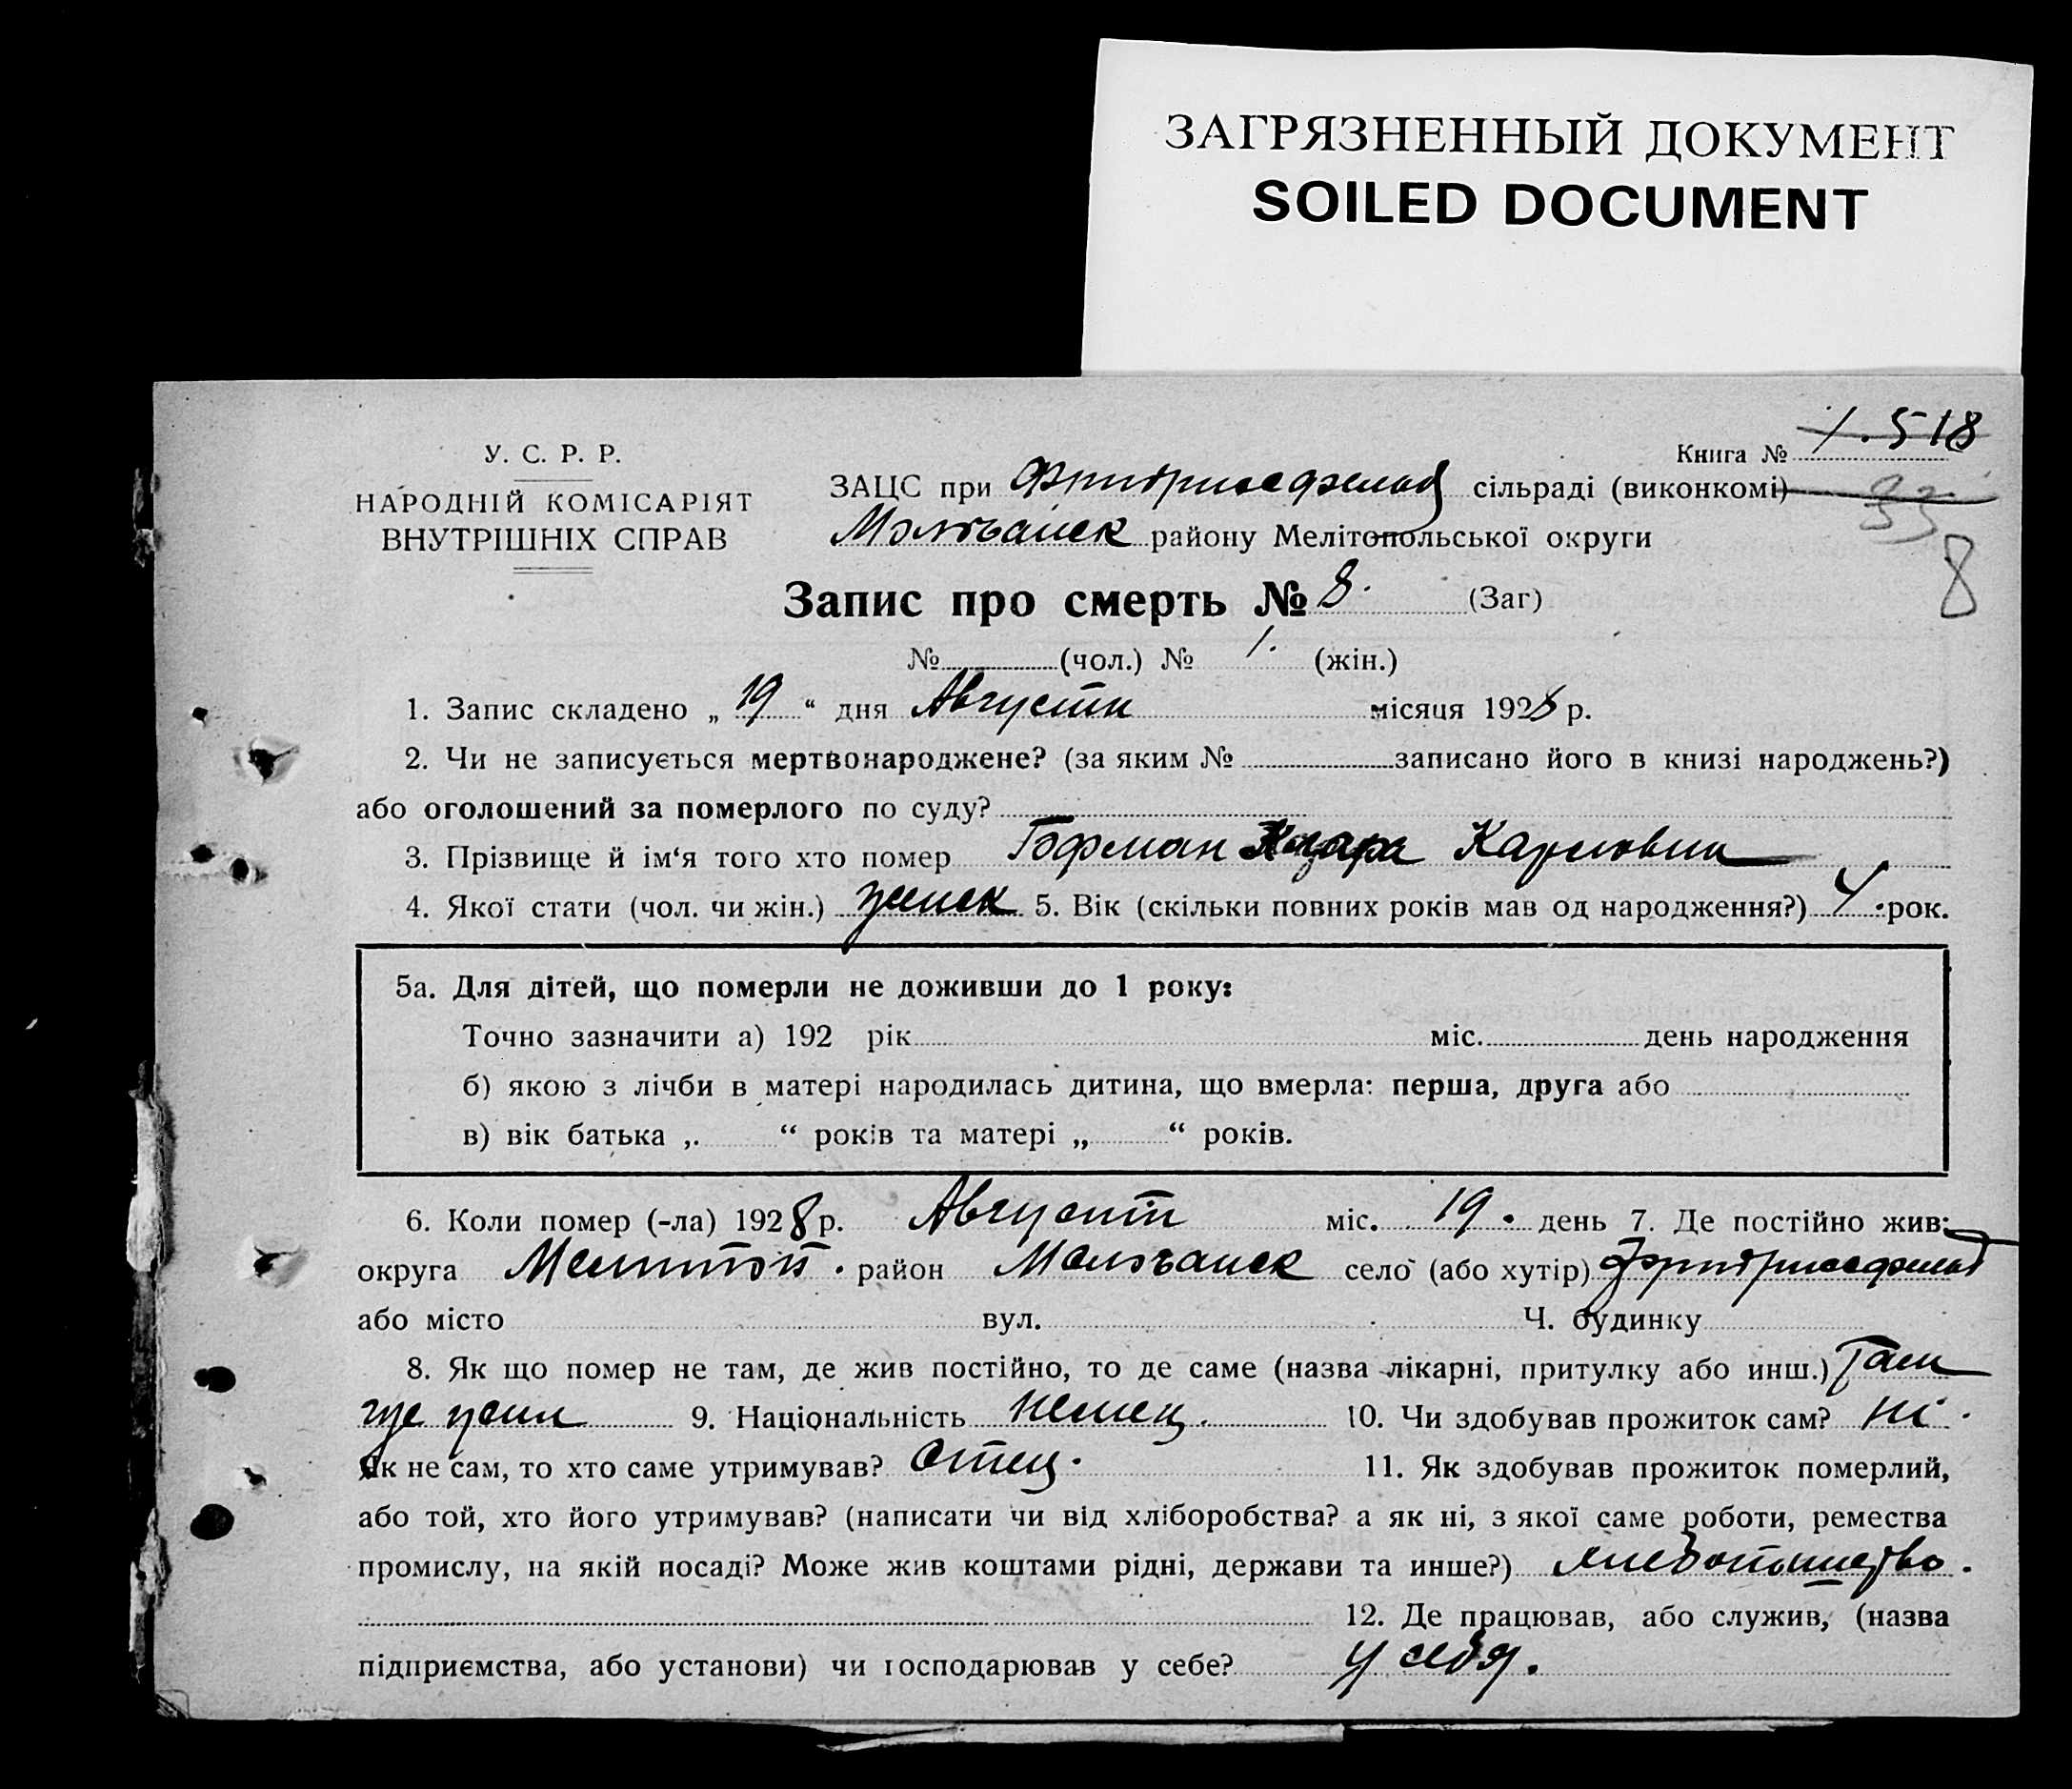 ЗАГРЯЗНЕННЫЙ ДОКУМЕНТ
SOILED DOCUMENT
Книга № 1.518
У. С. Р. Р.
НАРОДНІЙ КОМІСАРІЯТ
ВНУТРІШНІХ СПРАВ
ЗАЦС при сільраді (виконкомі)
33
району Мелітопольської округи
8
Запис про смерть № 8. (Заг)
№ (чол.) № 1. (жін.)
1. Запис складено „ 19 “ дня Августа місяця 1928 р.
2. Чи не записується мертвонароджене? (за яким № записано його в книзі народжень?)
або оголошений за померлого по суду?
3. Прізвище й ім‘я того хто помер Гофман Клара Карловна
4. Якої стати (чол. чи жін.) женск 5. Вік (скільки повних років мав од народження?) 4 рок.
5а. Для дітей, що померли не доживши до 1 року:
Точно зазначити а) 192 рік міс. день народження
б) якою з лічби в матері народилась дитина, що вмерла: перша, друга або
в) вік батька „ “ років та матері „ “ років.
6. Коли помер (-ла) 1928 р. Август міс. 19. день 7. Де постійно жив:
округа Мелитоп. район село (або хутір)
або місто вул. Ч. будинку
8. Як що помер не там, де жив постійно, то де саме (назва лікарні, притулку або инш.) Там
же 9. Національність немец. 10. Чи здобував прожиток сам? ні.
Як не сам, то хто саме утримував? Отец. 11. Як здобував прожиток померлий,
або той, хто його утримував? (написати чи від хліборобства? а як ні, з якої саме роботи, ремества
промислу, на якій посаді? Може жив коштами рідні, держави та инше?)
12. Де працював, або служив, (назва
підприємства, або установи) чи господарював у себе? у себя.